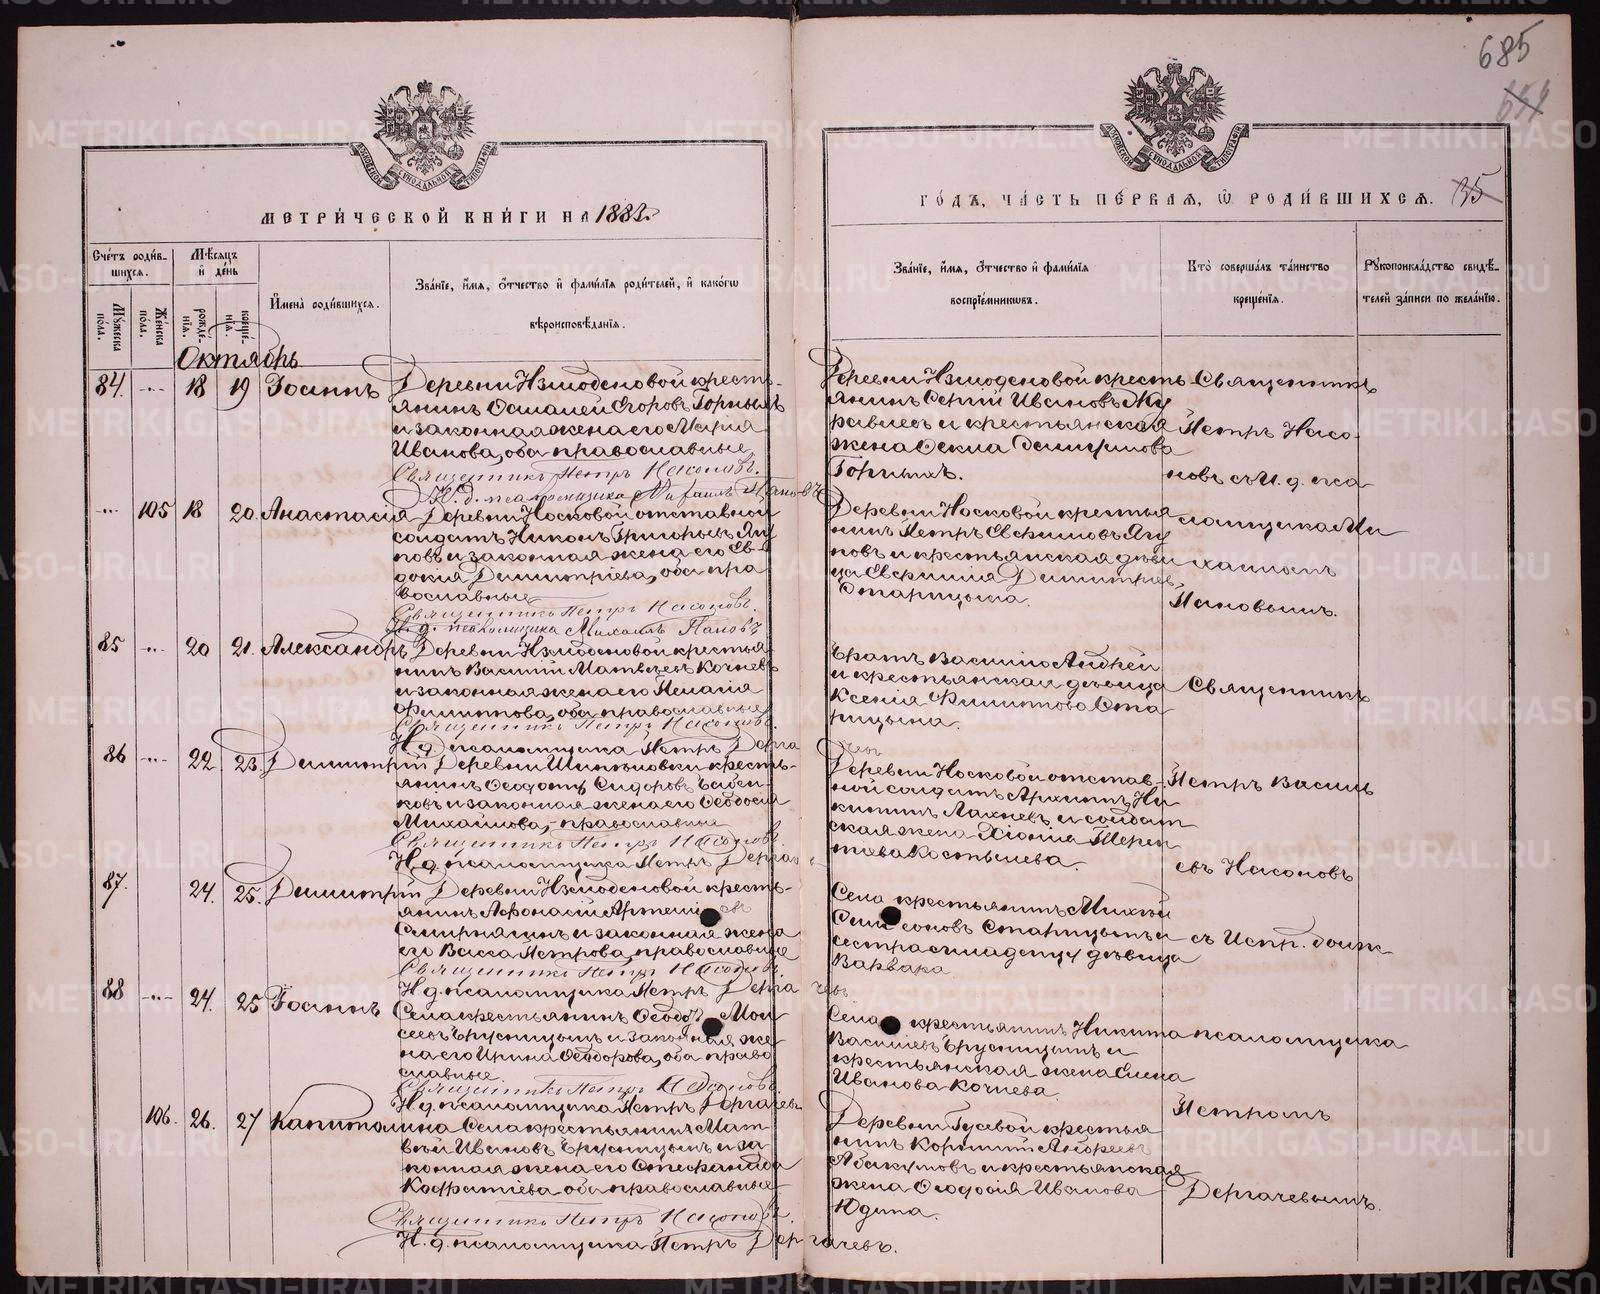 685
МЕТРИ́ЧЕСКОЙ КНИ́ГИ НА 1882.
ГО́ДЪ, ЧА́СТЬ ПЕ́РВАѦ, Ѡ҆ РОДИ́ВШИХСѦ. 35
Сче́тъ роди́в-
шихся.
Мѣ́сѧцъ
и҆ де́нь
Мꙋ́жеска по́ла.
Же́нска по́ла.
рожде́-
нїѧ.
креще́-
нїѧ.
И҆мена̀ роди́вшихсѧ.
Зва́нїе, и҆́мѧ, ѻ҆́тчество и҆ фами́лїѧ роди́телей, и҆ како́гѡ
вѣроисповѣ́данїѧ.
Зва́нїе, и҆́мѧ, ѻ҆́тчество и҆ фами́лїѧ
воспрїе́мникѡвъ.
Кто̀ соверша́лъ та́инство
креще́нїѧ.
Рꙋкоприкла́дство свидѣ́-
телей за́писи по жела́нїю.
Октябрь
84. -"- 18 19 Іоаннъ
янинъ Егоровъ Горныхъ
и законная жена его Марія
Иванова, оба православные
Священникъ Петръ Насоновъ.
И. д. псаломщика Михаилъ Пановъ
янинъ Сергій Ивановъ Жу
равлевъ и крестьянская
жена Димитріева
Горныхъ.
Священникъ
Петръ Насо-
новъ съ И. д. пса
-"- 105 18 20. Анастасія Деревни Носковой отставной
солдатъ Никонъ Григорьевъ
новъ и законная жена его Ев-
докія Димитріева, оба пра
вославные
Священникъ Петръ Насоновъ.
И. д. псаломщика Михаилъ Пановъ
Деревни Носковой крестья
нинъ Петръ Евфимовъ
новъ и крестьянская дѣви
ца Димитріева
Старицына.
ломщика Ми
хаиломъ
Пановымъ.
85 -"- 20 21. Александръ
нинъ Василій Матвѣевъ Кочневъ
и законная жена его Пелагія
Филиппова, оба православные
Священникъ Петръ Насоновъ.
И. д. псаломщика Петръ Дергачевъ
Братъ Василію Андрей
и крестьянская дѣвица
Ксенія Филиппова Ста
рицына.
Священникъ
86 -"- 22 23. Димитрій
янинъ Ѳеодотъ Сидоровъ Бабен-
ковъ и законная жена его Ѳеодосія
Михайлова, православные
Священникъ Петръ Насоновъ.
И. д. псаломщика Петръ Дергачев
Деревни Носковой отстав-
ной солдатъ Архиппъ Ни
китинъ и солдат
ская жена Хіонія Терен
тьева Костылева.
Петръ Василь
евъ Насоновъ
87. 24. 25. Димитрій
янинъ Аѳонасій Артеміевъ
Смирнягинъ и законная жена
его Васса Петрова, православные
Священникъ Петръ Насоновъ.
И. д. псаломщика Петръ Дергачевъ
Села крестьянинъ Михѣй
Симеоновъ Старицынъ и
сестра младенцу дѣвица
Варвара
съ Испр. долж.
88 -"- 24. 25 Іоаннъ Села крестьянинъ Ѳеодоръ Мои
сеевъ Брусницынъ и законная же
на его Ирина Ѳеодорова, оба право
славные
Священникъ Петръ Насоновъ
И. д. псаломщика Петръ Дергачевъ
Села крестьянинъ Никита
Васильевъ Брусницынъ и
крестьянская жена Елена
Иванова Кочнева.
псаломщика
Петромъ
106. 26. 27 Капитолина Села крестьянинъ Мат
вѣй Ивановъ Брусницынъ и за-
конная жена его Стефанида
Кодратіева оба православные
Священникъ Петръ Насоновъ.
И. д. псаломщика Петръ Дергачевъ.
Деревни Гусевой крестья
нинъ Корнилій Андреевъ
Абакумовъ и крестьянская
жена Ѳеодосія Иванова
Юдина.
Дергачевымъ.
METRIKI.GASO-URAL.RU